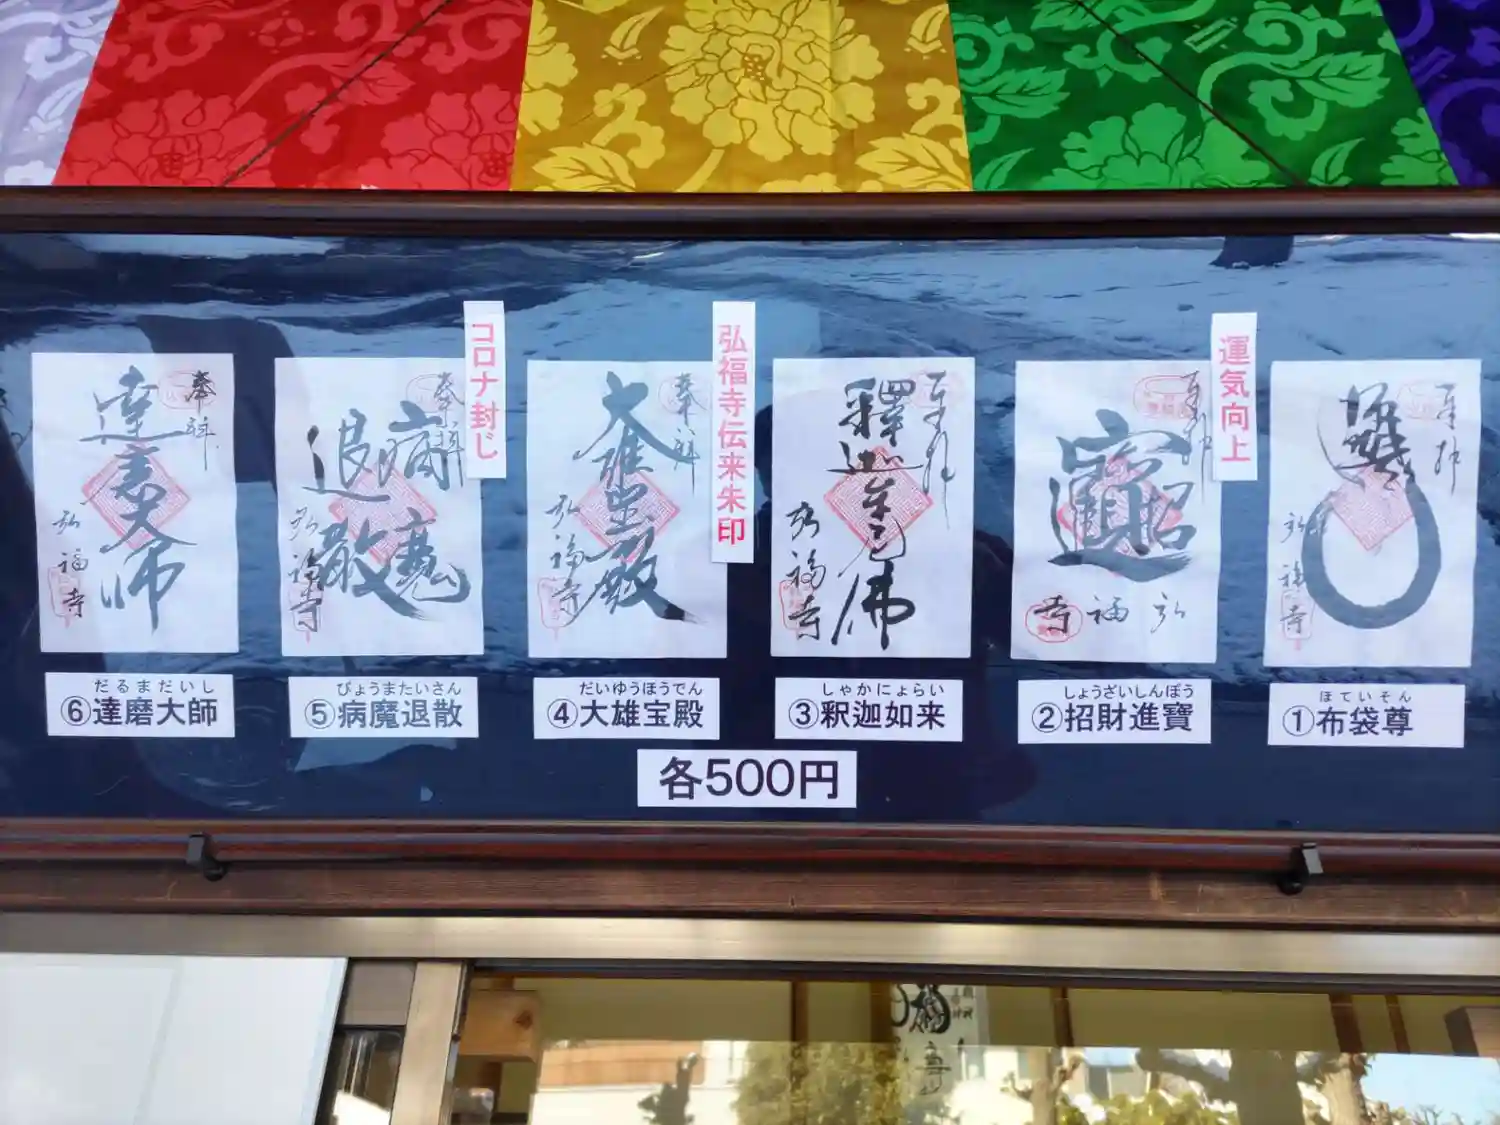 運気向上
弘福寺伝来朱印
コロナ封じ
奉拝
弘福寺
弘福寺
奉拝
釋迦牟尼佛
弘福寺
奉拝
大雄宝殿
弘福寺
奉拝
病魔退散
弘福寺
奉拝
達磨大師
弘福寺
ほていそん
①布袋尊
しょうざいしんぽう
②招財進寶
しゃかにょらい
③釈迦如来
だいゆうほうでん
④大雄宝殿
びょうまたいさん
⑤病魔退散
だるまだいし
⑥達磨大師
各500円